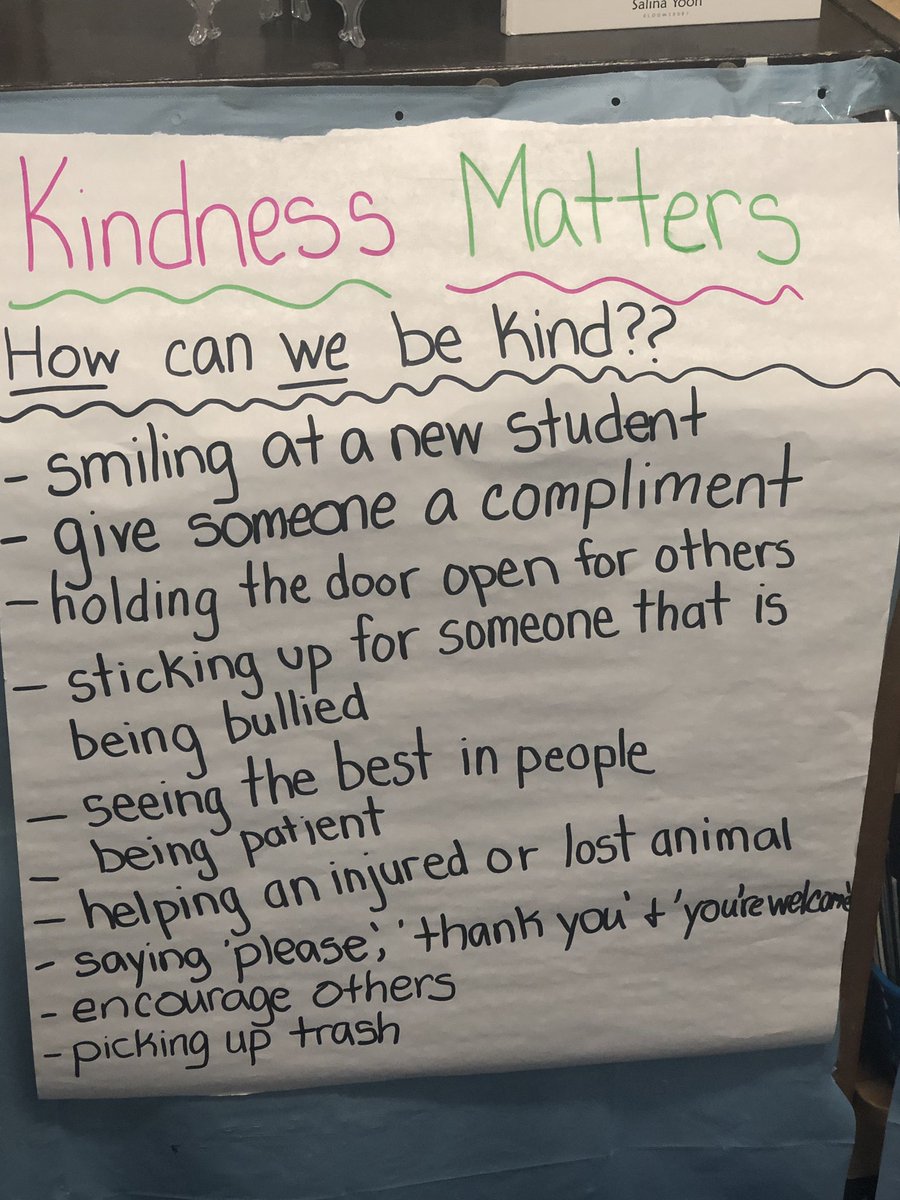 Salina Yoon
BLOOMSBURY
Kindness Matters
How can we be kind??
- smiling at a new student
- give someone a compliment
- holding the door open for others
- sticking up for someone that is
being bullied
- seeing the best in people
- being patient
- helping an injured or lost animal
- saying 'please', 'thank you' + 'you're welcome'
- encourage others
- picking up trash